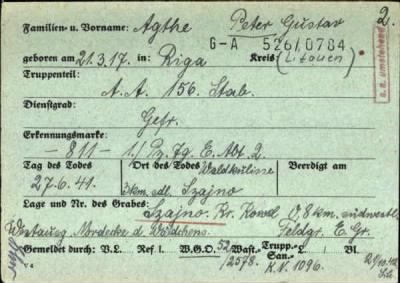 2.
Familien- u. Vorname: Agthe Peter Gustav
G-A 526/0784
geboren am 21.3.17. in: Riga Kreis: (Litauen)
s.a. umstehend
Truppenteil:
A.A. 156. Stab.
Dienstgrad:
Gefr.
Erkennungsmarke:
- 811 - 1./Pz.Jg.E.Abt.2.
Tag des Todes Ort des Todes Waldkulisse Beerdigt am
27.6.41. südl. Szajno
Lage und Nr. des Grabes:
Szajno. Kr. Kowel 0,8 km. südwestl.
Westausg. Nordecke d. Wäldchens. Feldgr. E. Gr.
Gemeldet durch: V.L. Ref I. W.G.O. 52 Wast.- Trupp.- L. Bl.
/2578. San.- K.V. 1096.
V 4